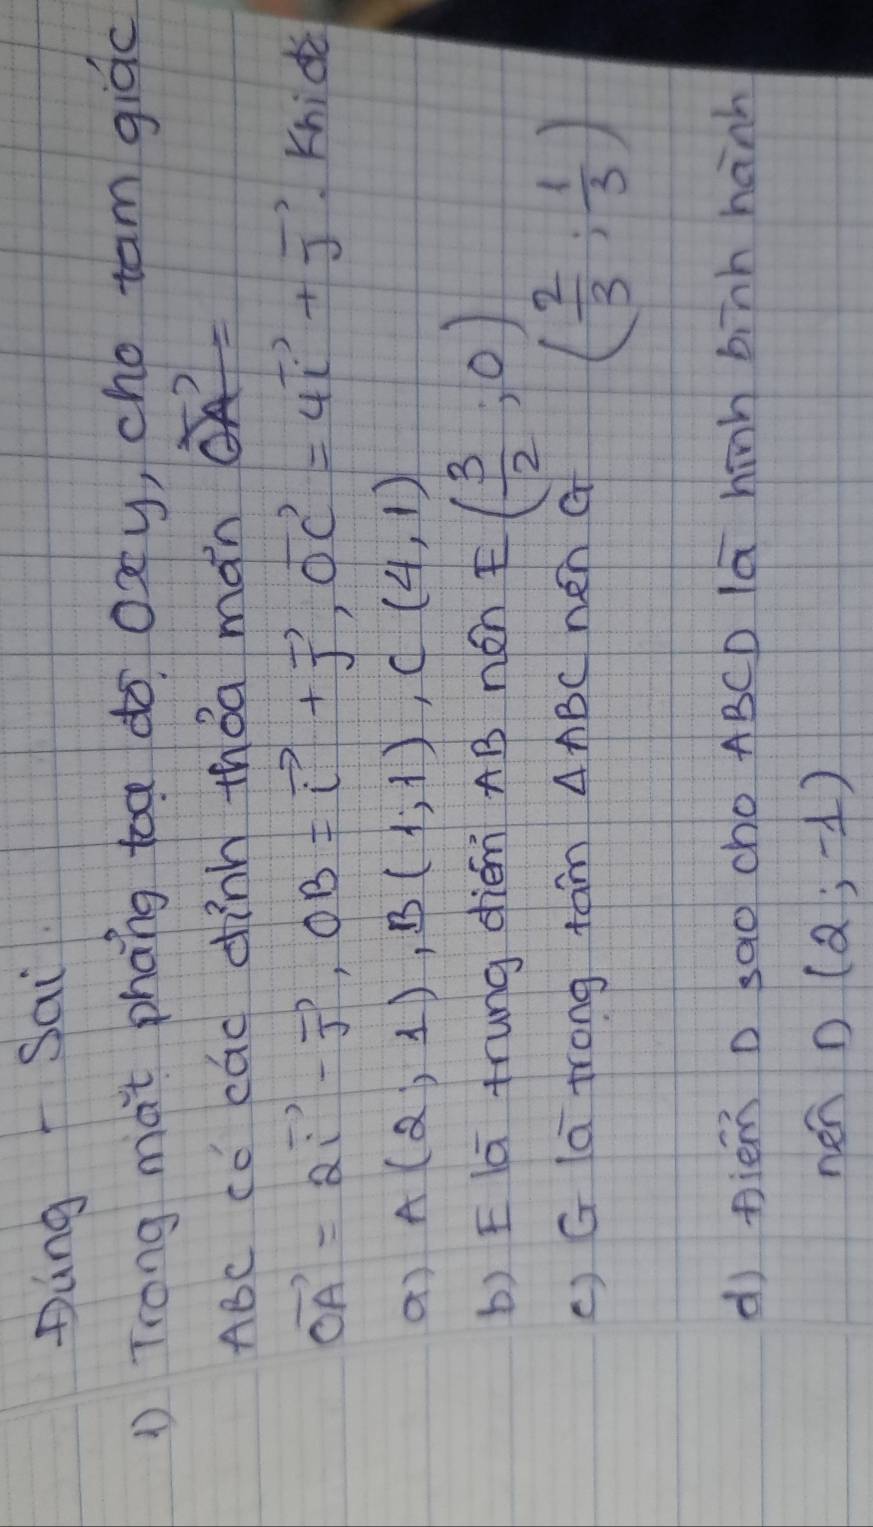 Đúng - Sai.
1) Trong mặt phẳng toạ độ Oxy, cho tam giác
ABC có các đỉnh thỏa mãn OA =
OA = 2i - j, OB = i + j, OC = 4i + j. Khi đó
a) A (2; 1), B (1; 1), C (4, 1)
b) E là trung điểm AB nên E (3/2; 0)
c) G là trọng tâm ΔABC nên G (2/3; 1/3)
d) Điểm D sao cho ABCD là hình bình hành
nên D (2; -1)